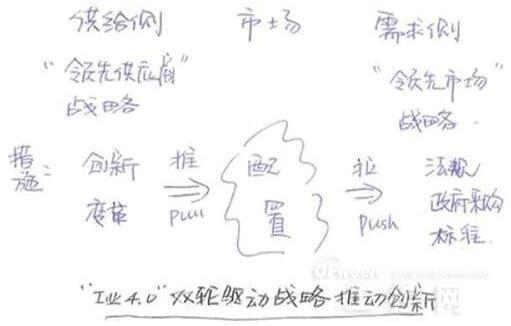 供给侧 市场 需求侧
"领先供应商" "领先市场"
战略 战略
措施: 创新 推 配 拉 法规
变革 Pull 置 push 政府采购
标准
"工业4.0"双轮驱动战略推动创新
OFweek